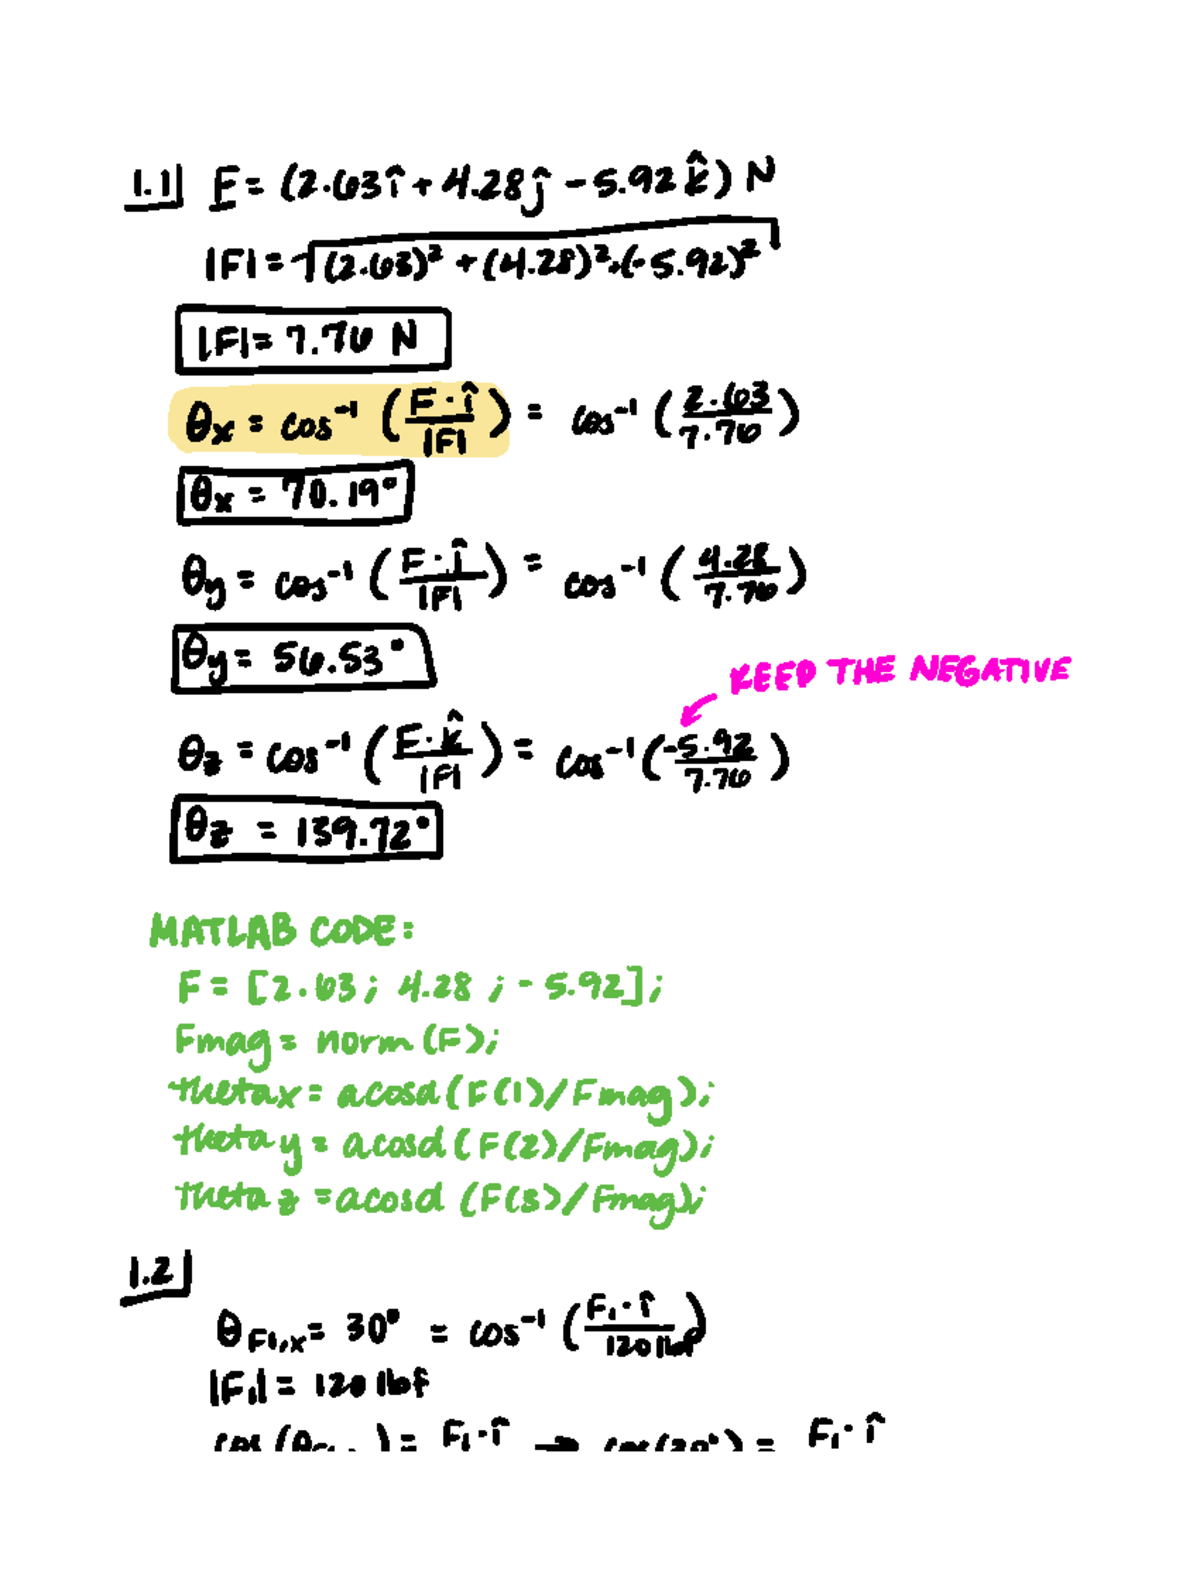 1.1] F = (2.63î + 4.28ĵ - 5.92k̂) N
|F| = √((2.63)² + (4.28)² + (-5.92)²)
|F| = 7.76 N
θx = cos⁻¹ (F·î / |F|) = cos⁻¹ (2.63 / 7.76)
θx = 70.19°
θy = cos⁻¹ (F·ĵ / |F|) = cos⁻¹ (4.28 / 7.76)
θy = 56.53°
KEEP THE NEGATIVE
θz = cos⁻¹ (F·k̂ / |F|) = cos⁻¹ (-5.92 / 7.76)
θz = 139.72°
MATLAB CODE:
F = [2.63; 4.28; -5.92];
Fmag = norm(F);
thetax = acosd(F(1)/Fmag);
thetay = acosd(F(2)/Fmag);
thetaz = acosd(F(3)/Fmag);
1.2]
θF1,x = 30° = cos⁻¹ (F₁·î / 120 lbf)
|F₁| = 120 lbf
cos(θF1,x) = F₁·î → cos(30°) = F₁·î